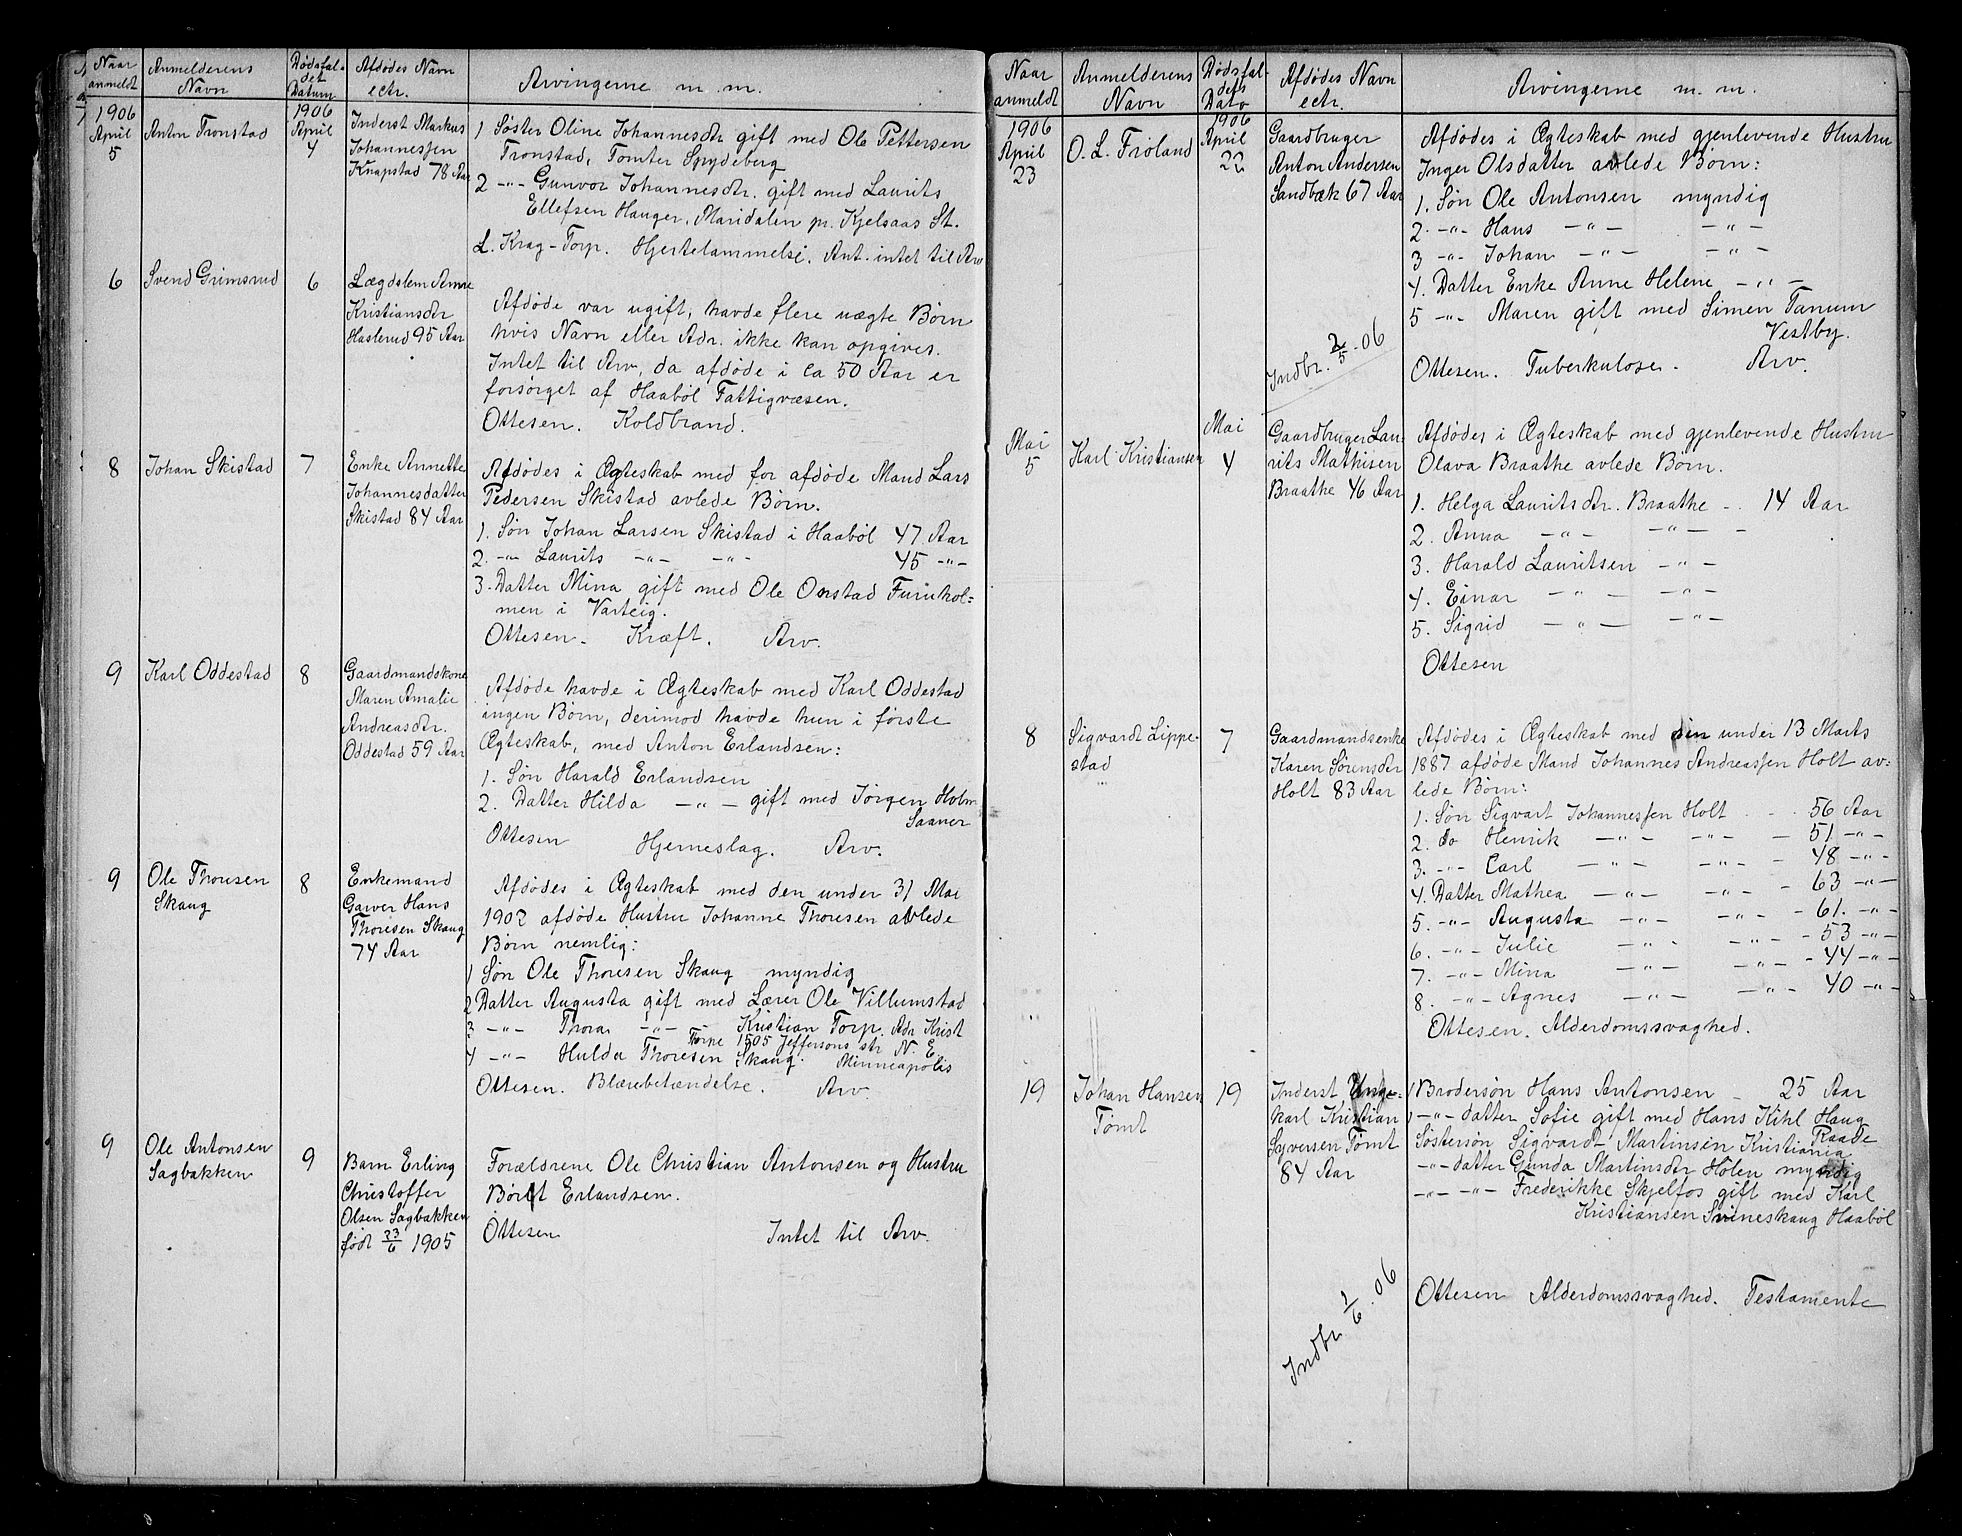 Naar anmeldt
Anmelderens Navn
Dødsfaldet Datum
Afdødes Navn ectr.
Arvingerne m. m.
1906 April 5
Anton Tronstad
1906 April 4
Inderst Markus
Johannesjen
Knapstad 78 Aar
1 Søster Oline Johannesdr gift med Ole Pettersen
Tronstad, Tomter Spydeberg
2 -"- Gunvor Johannesdr. gift med Laurits
Ellefsen Hauger, Maridalen pr. Kjelsaas St.
L. Krag-Torp. Hjertelammelse. Ant. intet til Arv
6
Svend Grimsrud
6
Lægdslem Anne
Kristiansdr
Haslerud 95 Aar
Afdøde var ugift, havde flere uægte Børn
hvis Navn eller Adr. ikke kan opgives.
Intet til Arv, da afdøde i ca 50 Aar er
forsørget af Haabøl Fattigvæsen.
Ottesen. Koldbrand.
8
Johan Skistad
7
Enke Annette
Johannesdatter
Skistad 84 Aar
Afdødes i Ægteskab med for afdøde Mand Lars
Pedersen Skistad avlede Børn.
1. Søn Johan Larsen Skistad i Haabøl 47 Aar
2. -"- Laurits -"- -"- 45 -"-
3. Datter Mina gift med Ole Onstad Furuhol=
men i Varteig.
Ottesen. Kræft. Arv.
9
Karl Oddestad
8
Gaardmandskone
Maren Amalie
Andreasdr.
Oddestad 59 Aar
Afdøde havde i Ægteskab med Karl Oddestad
ingen Børn, derimod havde hun i første
Ægteskab, med Anton Erlandsen:
1. Søn Harald Erlandsen
2. Datter Hilda -"- gift med Jørgen Holm
Saaner
Ottesen Hjerneslag. Arv.
9
Ole Thoresen
Skaug
8
Enkemand
Garver Hans
Thoresen Skaug
74 Aar
Afdødes i Ægteskab med den under 31 Mai
1902 afdøde Hustru Johanne Thoresen avlede
Børn nemlig:
1 Søn Ole Thoresen Skaug myndig
2 Datter Augusta gift med Lærer Ole Villumstad
3 -"- Thora -"- Kristian Torp. Adr Krist
Torpe 1505 Jeffersons str N. E.
4 -"- Hulda Thoresen Skaug. Minneapolis
Ottesen. Blærebetændelse. Arv.
9
Ole Antonsen
Sagbakken
9
Barn Erling
Christoffer
Olsen Sagbakken
født 23/6 1905
Forældrene Ole Christian Antonsen og Hustru
Børet Erlandsen.
Ottesen Intet til Arv.
Naar anmeldt
Anmelderens Navn
Dødsfaldets Dato
Afdødes Navn ectr.
Arvingerne m. m.
1906 April 23
O. L. Frøland
1906 April 22
Gaardbruger
Anton Andersen
Sandbæk 67 Aar
Indbr. 2/5-06
Afdødes i Ægteskab med gjenlevende Hustru
Inger Olsdatter avlede Børn:
1. Søn Ole Antonsen myndig
2. -"- Hans -"- -"-
3 -"- Johan -"- -"-
4. Datter Enke Anne Helene -"-
5 -"- Maren gift med Simen Tanum
Vestby.
Ottesen. Tuberkulose. Arv.
Mai 5
Karl Kristiansen
Mai 4
Gaardbruger Lau=
rits Mathisen
Braathe 46 Aar
Afdødes i Ægteskab med gjenlevende Hustru
Olava Braathe avlede Børn.
1. Helga Lauritsdr. Braathe 14 Aar
2. Anna -"- -"-
3. Harald Lauritsen -"-
4. Einar -"- -"-
5. Sigrid -"- -"-
Ottesen
8
Sigvardt Lippe=
stad
7
Gaardmandsenke
Karen Sørensdr
Holt 83 Aar
Afdødes i Ægteskab med den under 13 Marts
1887 afdøde Mand Johannes Andreasjen Holt av=
lede Børn:
1. Søn Sigvart Johannesjen Holt 56 Aar
2. do Henrik -"- -"- 51 -"-
3. -"- Carl -"- -"- 48 -"-
4. Datter Mathea -"- -"- 63 -"-
5. -"- Augusta -"- -"- 61. -"-
6. -"- Julie -"- -"- 53 -"-
7. -"- Mina -"- -"- 44 -"-
8. -"- Agnes -"- -"- 40 -"-
Ottesen. Alderdomssvaghed.
19
Johan Hansen
Tømt
19
Inderst Unge=
karl Kristian
Syversen Tømt
84 Aar
Indbr. 1/6.06
1 Brodersøn Hans Antonsen 25 Aar
1 -"- datter Sofie gift med Hans Kihl Haug
Raade
Søstersøn Sigvardt Martinsen Kristiania
-"- datter Gunda Martinsdr Holen myndig
-"- -"- Frederikke Skjelfos gift med Karl
Kristiansen Svineskaug Haabøl
Ottesen Alderdomssvaghed. Testamente